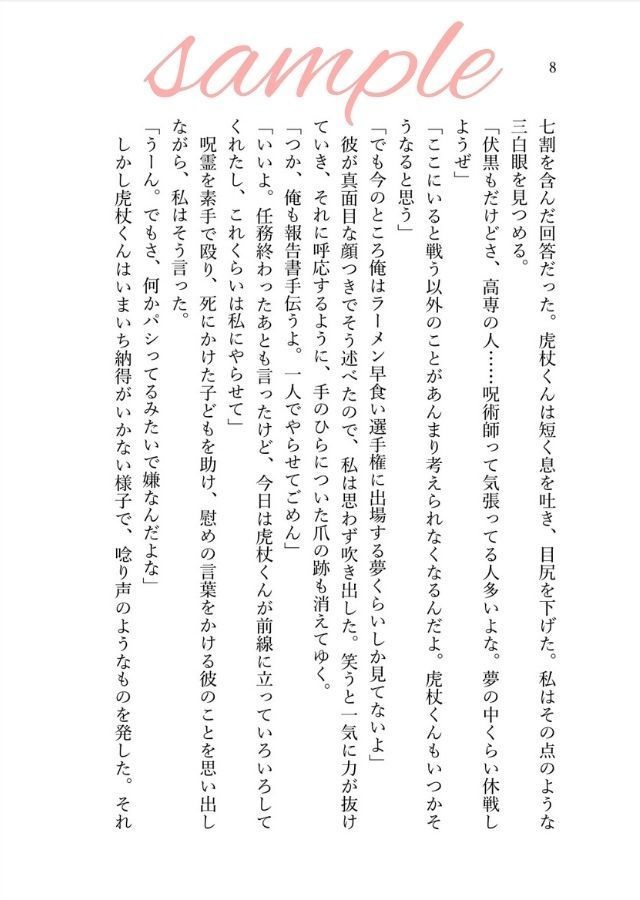 sample
8
七割を含んだ回答だった。虎杖くんは短く息を吐き、目尻を下げた。私はその点のような
三白眼を見つめる。
「伏黒もだけどさ、高専の人……呪術師って気張ってる人多いよな。夢の中くらい休戦し
ようぜ」
「ここにいると戦う以外のことがあんまり考えられなくなるんだよ。虎杖くんもいつかそ
うなると思う」
「でも今のところ俺はラーメン早食い選手権に出場する夢くらいしか見てないよ」
彼が真面目な顔つきでそう述べたので、私は思わず吹き出した。笑うと一気に力が抜け
ていき、それに呼応するように、手のひらについた爪の跡も消えてゆく。
「つか、俺も報告書手伝うよ。一人でやらせてごめん」
「いいよ。任務終わったあとも言ったけど、今日は虎杖くんが前線に立っていろいろして
くれたし、これくらいは私にやらせて」
呪霊を素手で殴り、死にかけた子どもを助け、慰めの言葉をかける彼のことを思い出し
ながら、私はそう言った。
「うーん。でもさ、何かパシってるみたいで嫌なんだよな」
しかし虎杖くんはいまいち納得がいかない様子で、唸り声のようなものを発した。それ